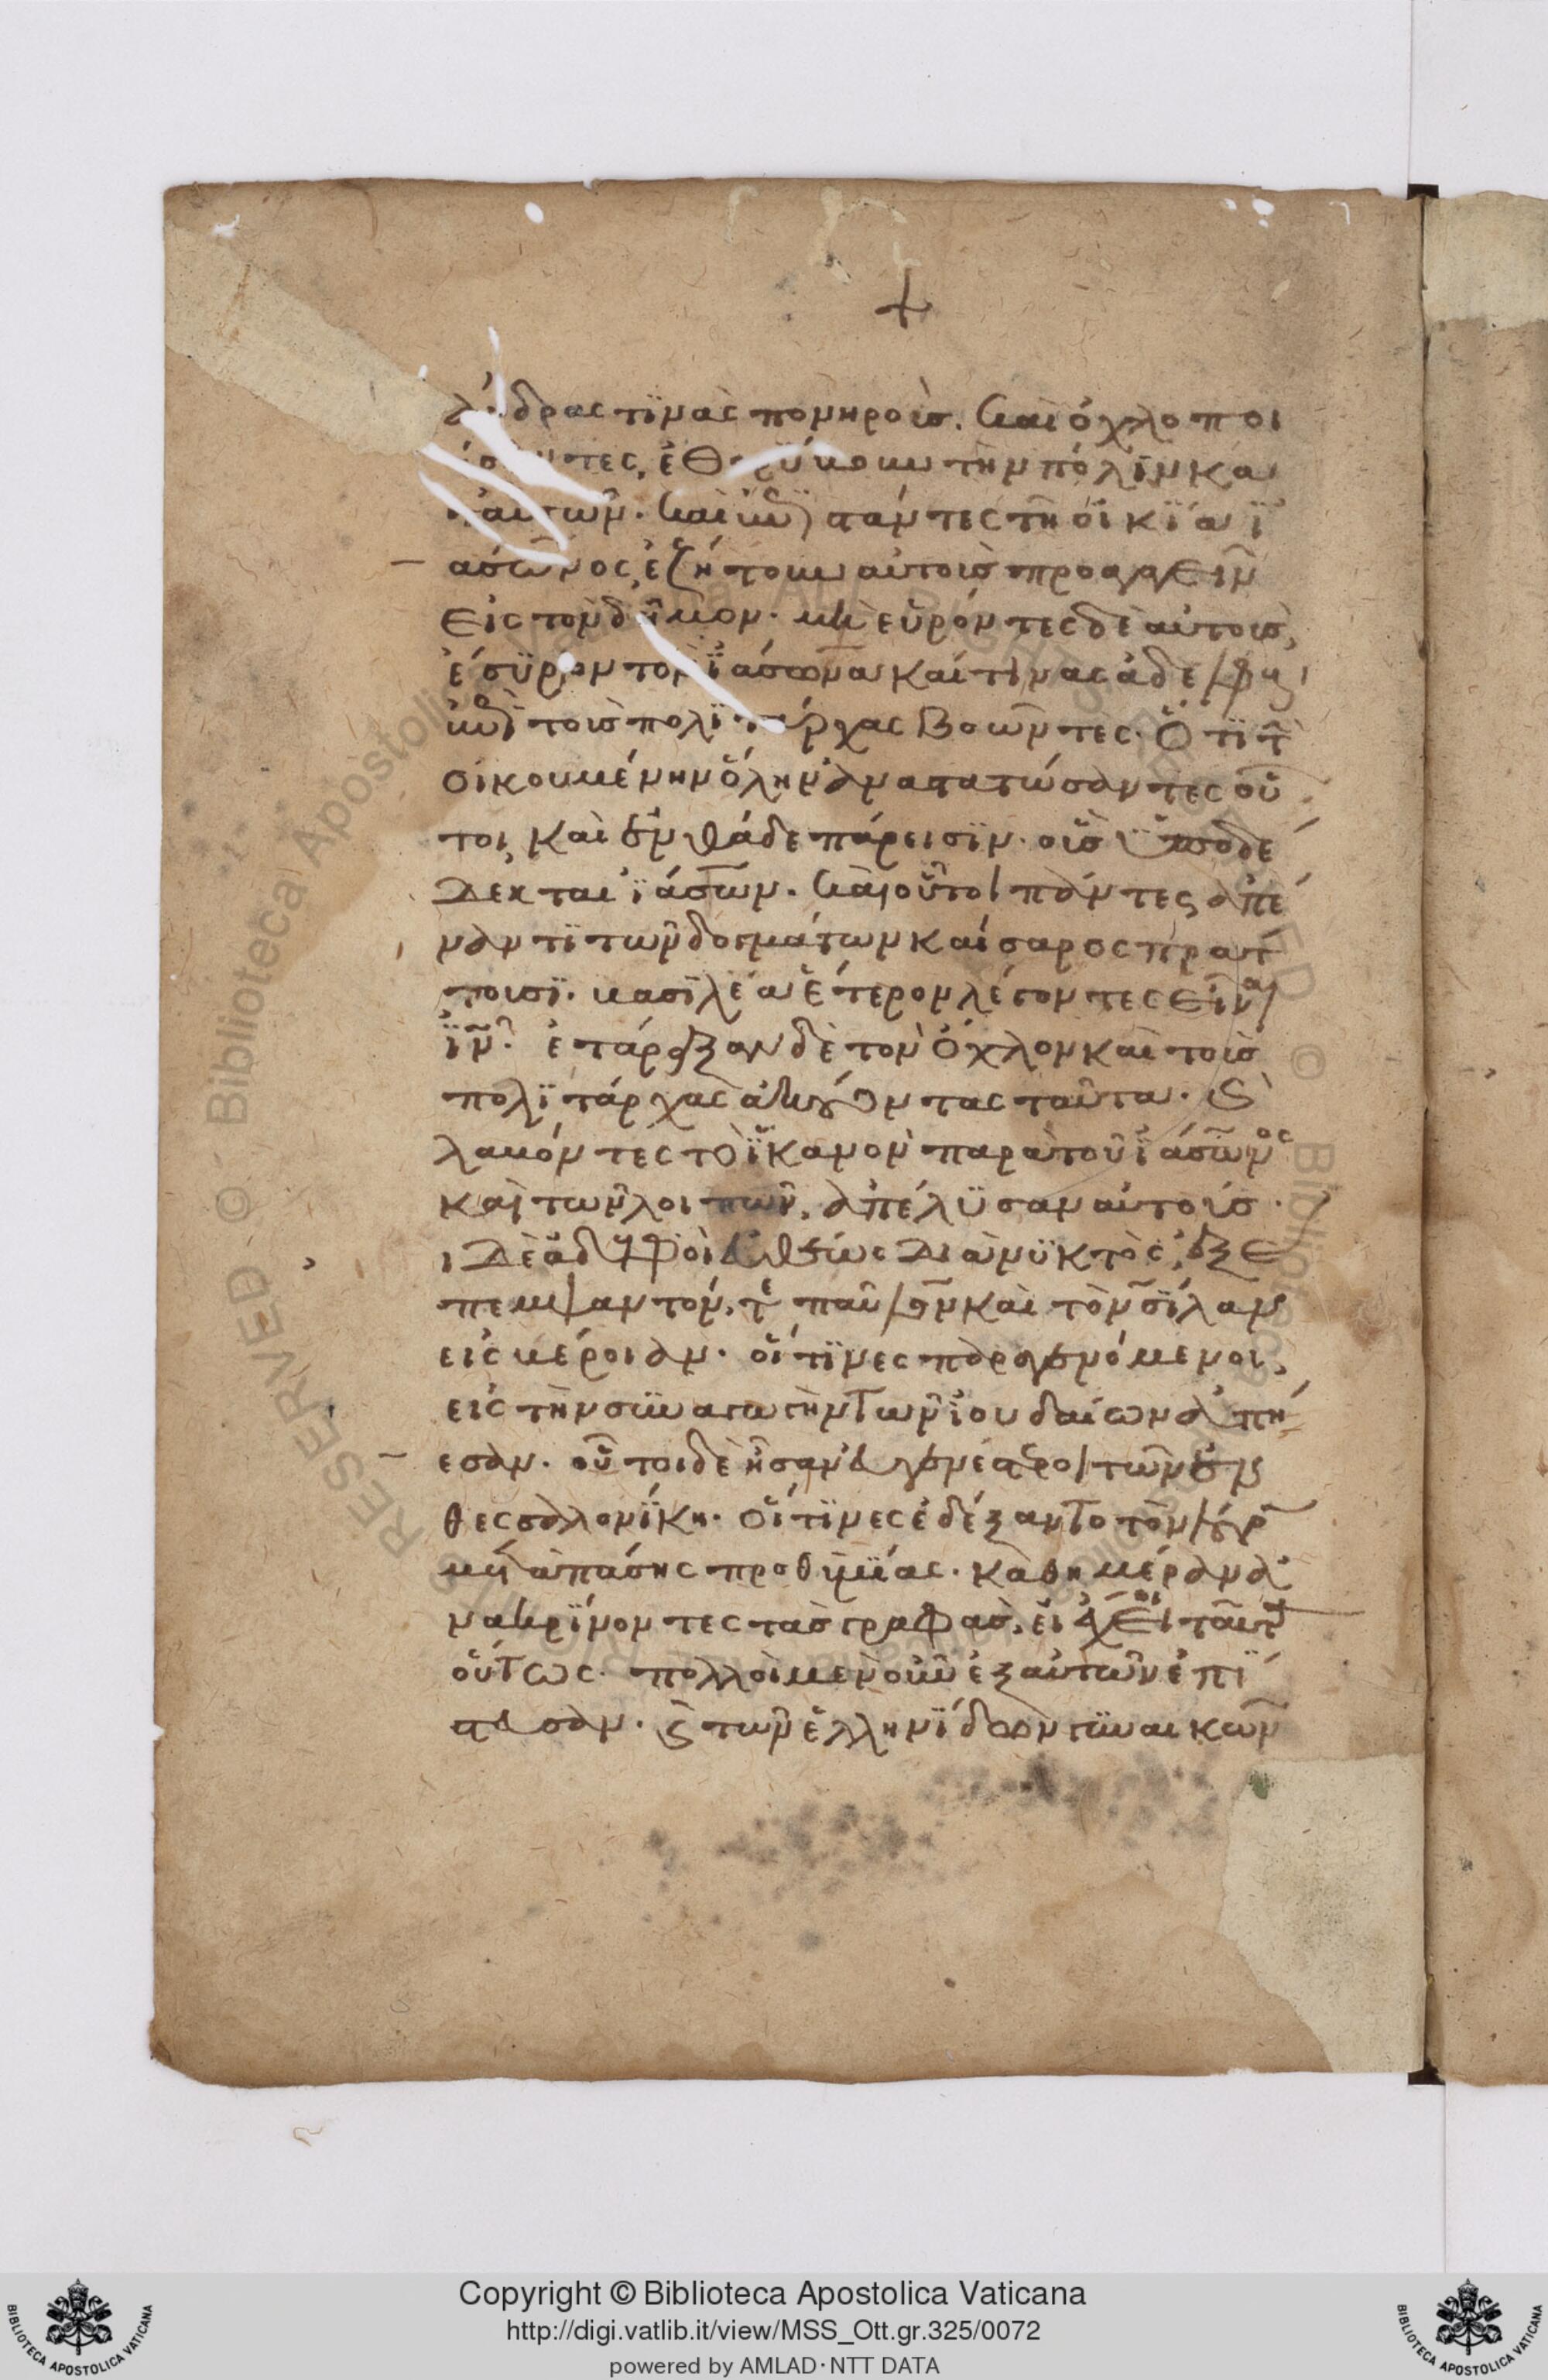 ἄνδρας τϊνὰς πονηροὺς. καὶ ὀχλοποι
ήσαντες, ἐθορϋβουν τὴν πόλϊν και
ἐπϊστάντες τῆ οἰκΐα ϊ
άσωνος, ἐζήτουν αὐτοὺς προαγαγεῖν
εἰς τὸν δῆμον. μὴ εὑρόντες δὲ αὐτοὺς,
ἔσϋρον τὸν ϊάσωνα καί τινας ἀδελφοὺς
ἐπὶ τοὺς πολϊτάρχας βοῶντες. ὅτϊ τὴν
οἰκουμένην ὅλην ἀναστατώσαντες οὗ
τοι, καὶ ἐνθάδε πάρεισϊν. οὓς ὑποδέ
δεκται ϊάσων. καὶ οὗτοι πάντες ἀπέ
ναντϊ τῶν δογμάτων καίσαρος πρατ
τουσϊ. βασϊλέα ἕτερον λέγοντες εἶναι
ϊν̅. ἐτάραξαν δὲ τὸν ὄχλον καὶ τοὺς
πολϊτάρχας ἀκούοντας ταῦτα. καὶ
λαβόντες τὸ ϊκανὸν παρὰ τοῦ ϊάσωνος
καὶ τῶν λοιπῶν, ἀπέλϋσαν αὐτούς.
ι δὲ ἀδελφοὶ εὐθέως διὰ νϋκτὸς, ἐξέ
πεμψαν τόν, τε παῦλον καὶ τὸν σΐλαν
εἰς βέροιαν. οἵτϊνες παραγενόμενοι,
εἰς τὴν σϋναγωγὴν τῶν ἰουδαίων ἀπή
εσαν. οὗτοι δὲ ἦσαν εὐγενέστεροι τῶν ἐν
θεσσαλονΐκη. οἵτϊνες ἐδέξαντο τὸν λόγον
μετὰ πάσης προθυμΐας. καθημέραν ἀ
νακρΐνοντες τὰς γραφὰς, εἰ ἔχοι ταῦτα
οὕτως. πολλοὶ μὲν οὖν ἐξ αὐτῶν ἐπΐ
στευσαν. καὶ τῶν ἑλληνΐδων γϋναικῶν
Copyright © Biblioteca Apostolica Vaticana
http://digi.vatlib.it/view/MSS_Ott.gr.325/0072
powered by AMLAD·NTT DATA